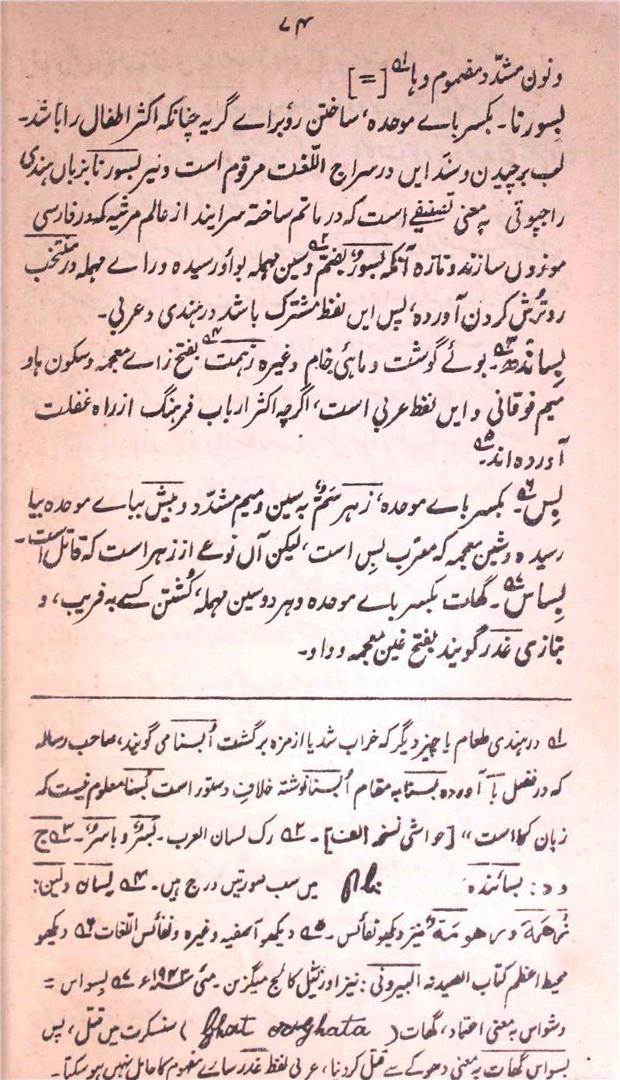 ۷۴
و نون مشدّد مضموم و ہا؎۱ [=]
بسورنا۔ بکسر باے موحدہ، ساختن رو براے گریہ چنانکہ اکثر اطفال را باشد۔
لب برچیدن و سند ایں در سراج اللّغت مرقوم است و نیر بسورنا بزباں ہندی
راجپوتی بہ معنی تصنیفے است کہ در ماتم ساختہ سرایند از عالم مرثیہ کہ در فارسی
موزوں سازند و تازہ آنکہ بسورٌ؎۲ بضم و سین مہملہ بواو رسیدہ و راے مہملہ در منتخب
رو ترش کردن آوردہ، پس ایں لفظ مشترک باشد در ہندی و عربی۔
بساندھ؎۳۔ بوئے گوشت و ماہئ خام وغیرہ زہمت؎۴ بفتح زاے معجمہ و سکون ہا و
میم فوقانی و ایں لفظ عربی است، اگرچہ اکثر ارباب فرہنگ از راہ غفلت
آوردہ اند؎۵۔
بِس؎۶۔ بکسر باے موحدہ، زہر سَمٌّ بہ سین و میم مشدّد و بیش بباے موحدہ بیا
رسیدہ و شین معجمہ کہ معرب بِس است، لیکن آں نوعے از زہر است کہ قاتل است۔
بِساس؎۷۔ گھات بکسر باے موحدہ و ہر دو سین مہملہ، کُشتن کسے بہ فریب، و
بتازی غدر گویند بفتح غین معجمہ و واو۔
؎۱ در ہندی طعام یا چیز دیگر کہ خراب شد یا از مزہ برگشت اُبسنا می گویند، صاحب رسالہ
کہ در فصل با آوردہ بسنا بہ مقام اُبسنا نوشتہ خلاف دستور است بُسنا معلوم نیست کہ
زبان کجا است" [حواشی نسخہ الف]۔ ؎۲ رک لسان العرب۔ بسرٌ و باسرٌ۔ ؎۳ ج
و د : بسائندہ میں سب صورتیں درج ہیں۔ ؎۴ لسان و لین :
نیز دیکھو نفائس۔ ؎۵ دیکھو آصفیہ وغیرہ و نفائس اللّغات ؎۶ دیکھو
محیط اعظم کتاب الصیدنہ البیرونی : نیز اورنٹیل کالج میگزین۔ مئی ؎۷ بسواس =
وشواس بہ معنی اعتماد، گھات (ghata) سنسکرت میں قتل، پس
بسواس گھات بہ معنی دھوکے سے قتل کر دینا، عربی لفظ غدر سارے مفہوم کا حامل نہیں ہو سکتا۔